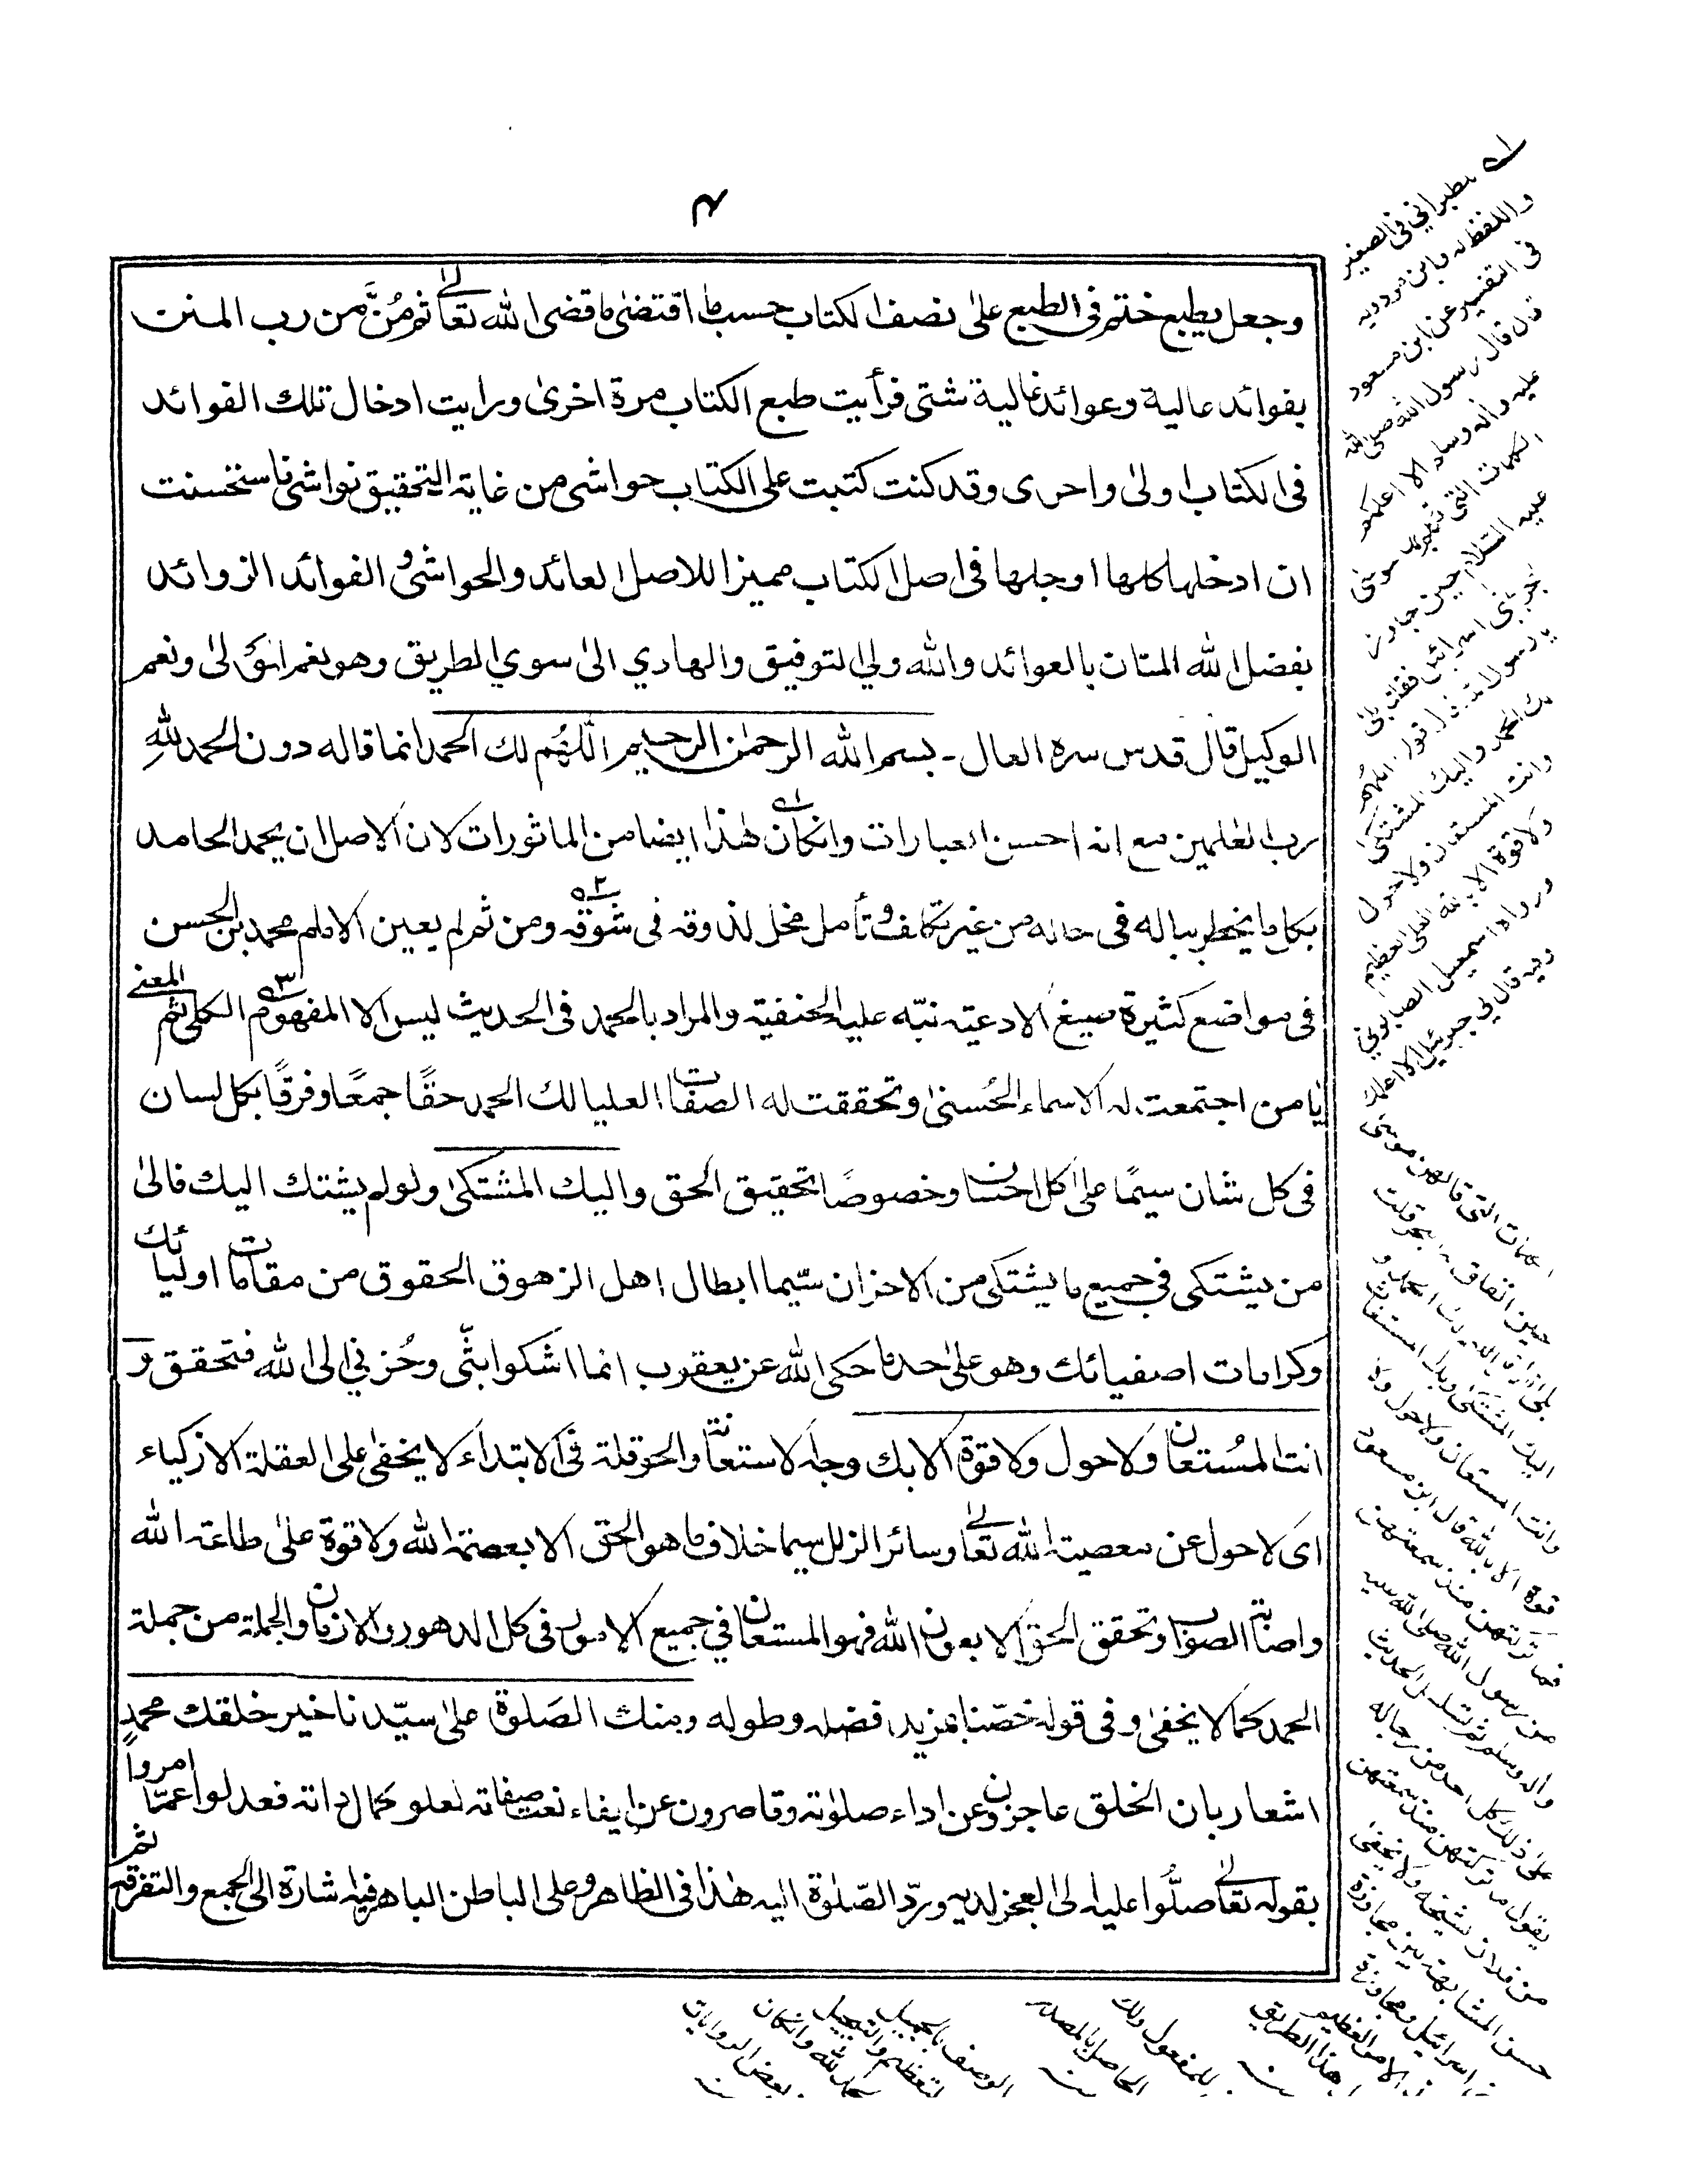 ۴
وجعل يطبع ختم في الطبع على نصف الكتاب حسب ما اقتضى ما قضى الله تعالى ثم منَّ من رب المنن
بفوائد عالية وعوائد غالية شتى فرأيت طبع الكتاب مرة اخرى ورايت ادخال تلك الفوائد
في الكتاب اولى واحرى وقد كنت كتبت على الكتاب حواشي من غاية التحقيق نواشي فاستحسنت
ان ادخلها كلها اوجلها في اصل الكتاب مميزا للاصل العائد والحواشي و الفوائد الزوائد
بفضل الله المنان بالعوائد والله ولي التوفيق والهادي الى سوي الطريق وهو نعم المولى ونعم
الوكيل قال قدس سره العال ـ بسم الله الرحمٰن الرحيم اللّٰهُم لك الحمد انما قاله دون الحمد للهِ
رب العٰلمين مع انه احسن العبارات وانكان هٰذا ايضا من الماثورات لان الاصل ان يحمد الحامد
بكل ما يخطر بباله في حاله من غير تكلف وتأمل مخل لذوقه في شوقه ومن ثم لم يعين الامام محمد بن الحسن
في مواضع كثيرة صيغ الادعية نبّه عليه الحنفية والمراد بالحمد في الحديث ليس الا المفهوم الكلي ثم المعنى
يا من اجتمعت له الاسماء الحُسنى وتحققت له الصفات العليا لك الحمد حقًا جمعًا وفرقًا بكل لسان
في كل شان سيمًا على كل احسان وخصوصًا تحقيق الحق واليك المشتكى ولو لم يشتك اليك فالى
من يشتكى في جميع ما يشتكى من الاحزان سيّما ابطال اهل الزهوق الحقوق من مقامات اوليائك
وكرامات اصفيائك وهو على حد ما حكى الله عن يعقوب انما اشكوا بثّي وحُزني الى الله فتحقق و
انت المُستعان ولا حول ولا قوة الا بك وجه الاستعانة والحوقلة في الابتداء لا يخفى على العقلة الازكياء
اى لا حول عن معصية الله تعالى وسائر الزلل سيما خلاف ما هو الحق الا بعصمة الله ولا قوة على طاعة الله
واصابة الصواب وتحقق الحق الا بعون الله فهو المستعان في جميع الامور في كل الدهور والازمان والجملة من جملة
الحمد كما لا يخفى وفي قوله خصّنا بمزيد فضله وطوله ومنك الصَلوة على سيّدنا خير خلقك محمدٍ
اشعار بان الخلق عاجزون عن اداء صلوٰته وقاصرون عن ايفاء نعت صفاته لعلو كمال ذاته فعدلوا عمّا امروا
بقوله تعالى صلُّوا عليه الى العجز لديه وردّ الصّلوة اليه هٰذا في الظاهر وعلى الباطن الباهر فيه اشارة الى الجمع والتفرقة ثم
طبراني في الصغير
واللفظ له وابن مردويه
في التفسير عن ابن مسعود
قال قال رسول الله صلى الله
عليه وآله وسلم الا اعلمكم
الكلمات التي تكلم بها موسى
عليه السّلام حين جاوز
البحر ببني اسرائيل فقلنا بلى
يا رسول الله قال قولوا اللّٰهم
لك الحمد واليك المشتكى
وانت المستعان ولا حول
ولا قوة الا بالله العلي العظيم
ورواه اسمعيل الصابوني
وفيه قال لي جبريل الا اعلمك
الكلمات التي قالهن موسى
حين انفلق له البحر قلت
بلى قال قل اللهم لك الحمد و
اليك المشتكى وبك المستغاث
وانت المستعان ولا حول ولا
قوة الا بالله قال ابن مسعود
فما تركتهن منذ سمعتهن
من رسول الله صلى الله عليه
وآله وسلم
على ذلك كل احد من رجاله
يقول ما تركتهن منذ سمعتهن
من فلان لشيخه ولا يخفى
حسن المشابهة بين مجاوزة
اسرائيل ومجاوزة
الامر العظيم
هذا الطريق
للمفعول وذلك
الحاصل بالمصدر
الوصف بالجميل
لتعظيم والتبجيل
حمد لله وانكان
بعض الروايات